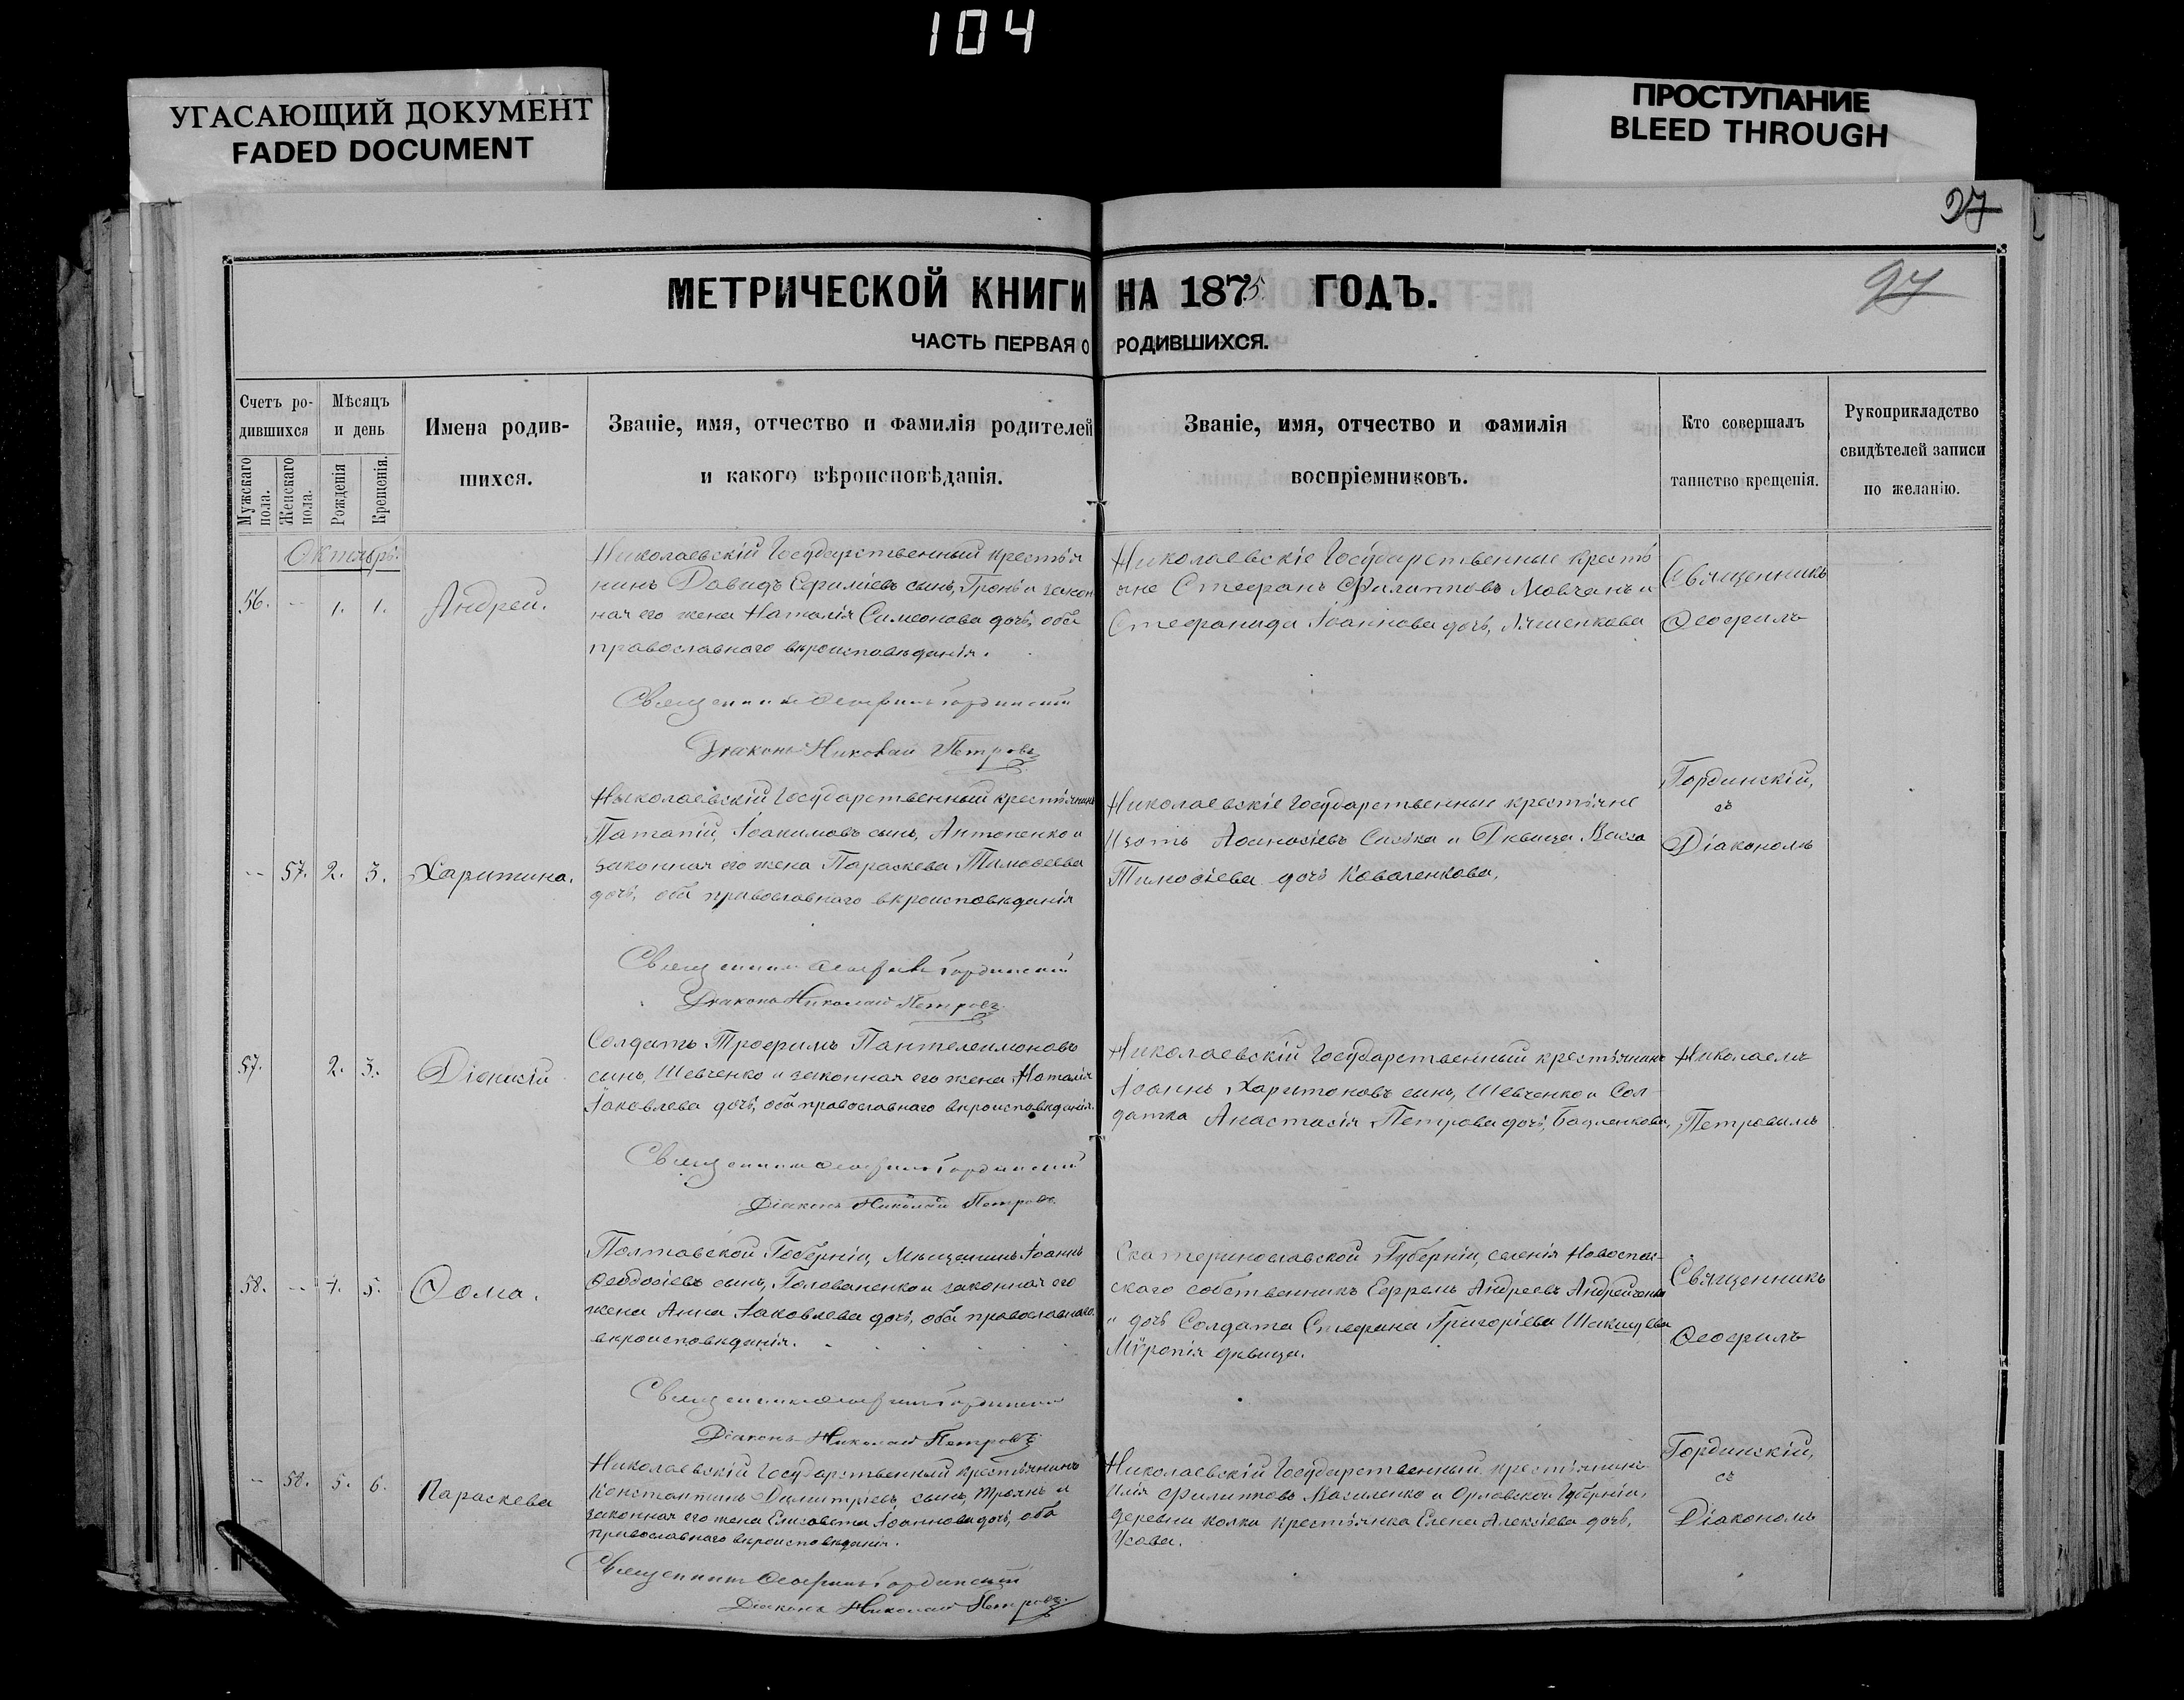 104
УГАСАЮЩИЙ ДОКУМЕНТ
FADED DOCUMENT
ПРОСТУПАНИЕ
BLEED THROUGH
27
27
МЕТРИЧЕСКОЙ КНИГИ НА 1875 ГОДЪ.
ЧАСТЬ ПЕРВАЯ О РОДИВШИХСЯ.
Счетъ ро-
дившихся
Мужскаго пола.
Женскаго пола.
Мѣсяцъ
и день
Рожденія
Крещенія.
Имена родив-
шихся.
Званіе, имя, отчество и фамилія родителей
и какого вѣроисповѣданія.
Званіе, имя, отчество и фамилія
воспріемниковъ.
Кто совершалъ
таинство крещенія.
Рукоприкладство
свидѣтелей записи
по желанію.
Октябрь.
56. -- 1. 1. Андрей.
Николаевскій Государственный крестья
нинъ Давидъ Ефиміевъ сынъ, Гронь и закон
ная его жена Наталія Симеонова дочь, оба
православнаго вѣроисповѣданія.
Священникъ Ѳеофилъ Гординскій
Діаконъ Николай Петровъ
Николаевскіе Государственные кресть
яне Стефанъ Филипповъ Мовчанъ и
Стефанида Іоаннова дочь, Ляшенкова
Священникъ
Ѳеофилъ
Гординскій,
съ
Діакономъ
-- 57. 2. 3. Харитина.
Николаевскій Государственный крестьянинъ
Патапій, Іоакимовъ сынъ, Антоненко и
законная его жена Параскева Тимоѳеева
дочь, оба православнаго вѣроисповѣданія
Священникъ Ѳеофилъ Гординскій
Діаконъ Николай Петровъ
Николаевскіе Государственные крестьяне
Изотъ Аѳанасіевъ и Дѣвица Васса
Тимоѳіева дочь Коваленкова.
57. 2. 3. Діонисій
Солдатъ Трофимъ Пантелеимоновъ
сынъ, Шевченко и законная его жена Наталія
Іаковлева дочь, оба православнаго вѣроисповѣданія.
Священникъ Ѳеофилъ Гординскій
Діаконъ Николай Петровъ
Николаевскій Государственный крестьянинъ
Іоаннъ Харитоновъ сынъ, Шевченко и Сол-
датка Анастасія Петрова дочь,
Николаемъ
Петровымъ
58. -- 4. 5. Ѳома.
Полтавской Губерніи, Мѣщанинъ Іоаннъ
Ѳеодосіевъ сынъ, Голованенко и законная его
жена Анна Іаковлева дочь, оба православнаго
вѣроисповѣданія.
Священникъ Ѳеофилъ Гординскій
Діаконъ Николай Петровъ
Екатеринославской Губерніи, селенія Новоспас-
скаго собственникъ Ефремъ Андреевъ Андрейченко
и дочь Солдата Стефана Григоріева
Мѵропія дѣвица.
Священникъ
Ѳеофилъ
Гординскій,
съ
Діакономъ
-- 58. 5. 6. Параскева
Николаевскій Государственный крестьянинъ
Константинъ Димитріевъ сынъ, Троянъ и
законная его жена Елисавета Іоаннова дочь, оба
православнаго вѣроисповѣданія.
Священникъ Ѳеофилъ Гординскій
Діаконъ Николай Петровъ
Николаевскій Государственный крестьянинъ
Илія Филипповъ Василенко и Орловской Губерніи,
деревни колки крестьянка Елена Алексіева дочь,
Усова.